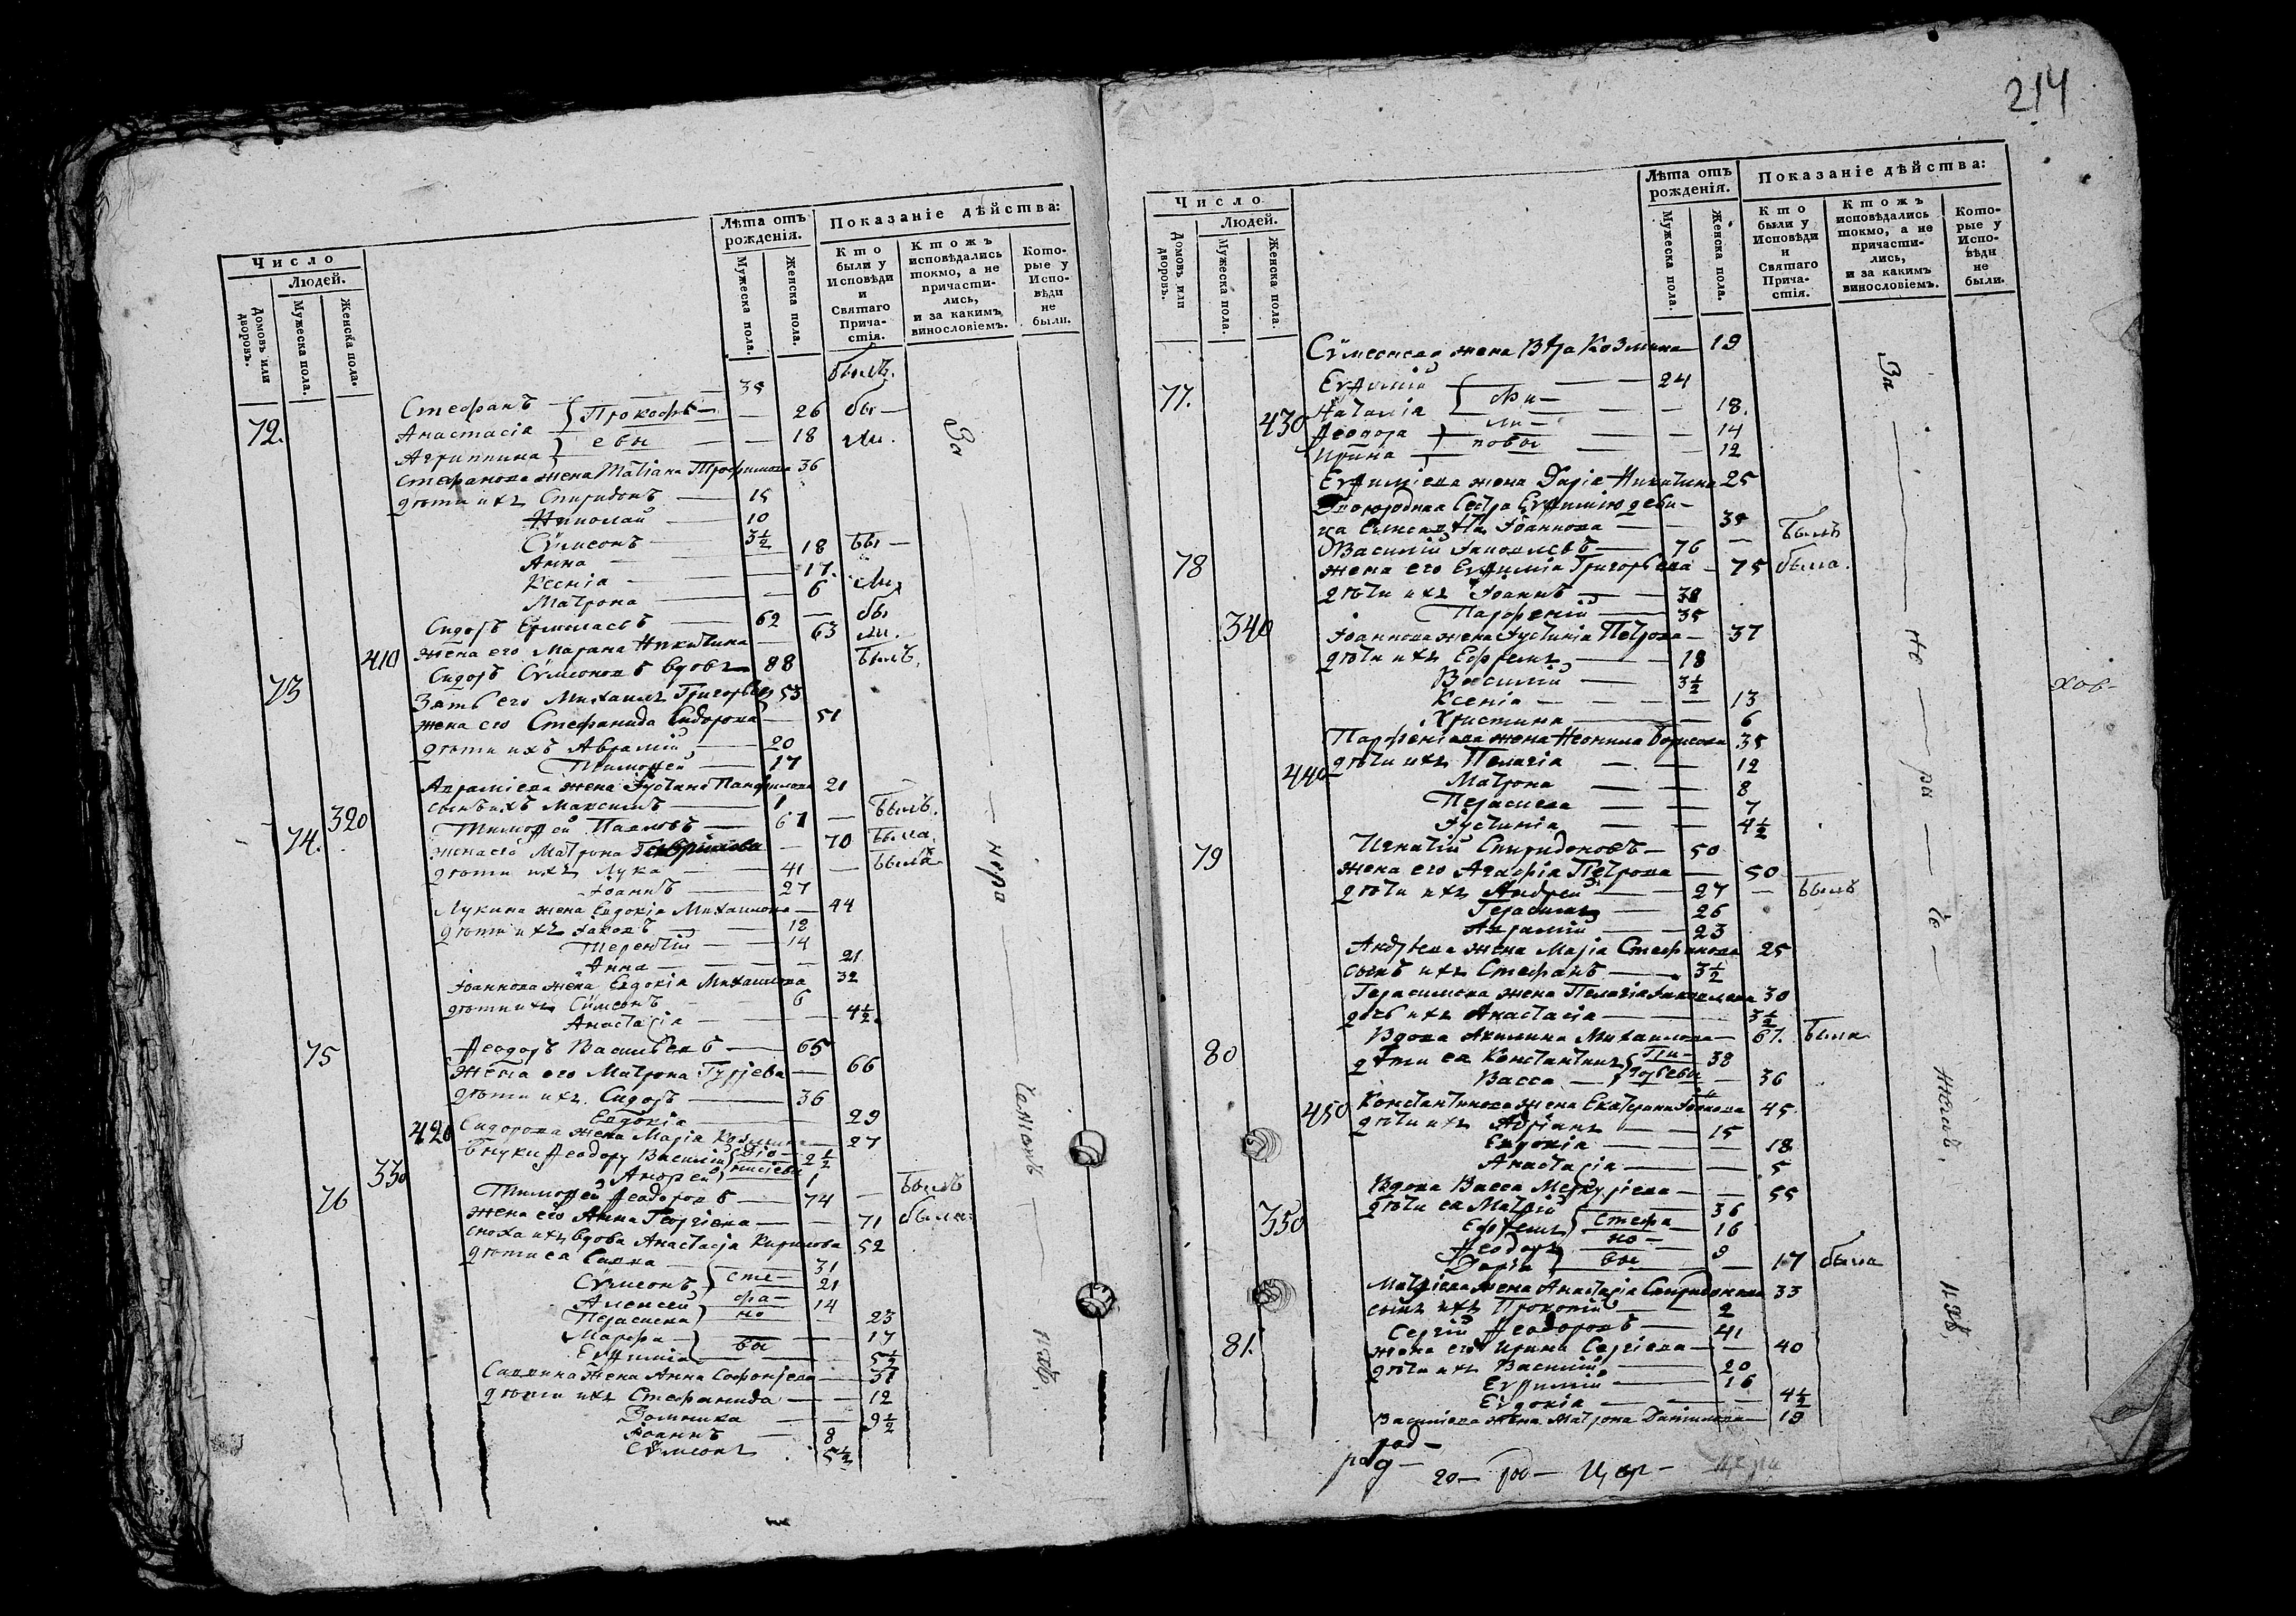 Число
Людей.
Домовъ или дворовъ.
Мужеска пола.
Женска пола.
Лѣта отъ рожденія.
Мужеска пола.
Женска пола.
Показаніе дѣйства:
Кто были у Исповѣди и Святаго Причастія.
Ктожъ исповѣдались токмо, а не причастились, и за какимъ винословіемъ.
Которые у Исповѣди не были.
72. Стефанъ 35 былъ.
Анастасія Прокофь- 26 бы-
Агриппина евы 18 ли.
Стефанова жена Татіана Трофимова 36
дѣти ихъ Спиридонъ 15
Николай 10
Сѵмеонъ 3½
Анна 18 бы-
Ксенія 17. ли
Матрона 6
Сидоръ Ермолаевъ 62 бы
410 жена его Марина Никитина 63 ли.
73 Сидоръ Сѵмеоновъ вдовъ 88 былъ.
Зять его Михаилъ Григорьевъ 53
жена его Стефанида Сидорова 51
дѣти ихъ Авраамій 20
Тимоѳей 17
Авраміева жена Іустина Панфилова 21
320 сынъ ихъ Максимъ 1
74. Тимоѳей Павловъ 61 былъ.
жена его Матрона 70 была
дѣти ихъ Лука 41 былъ
Іоаннъ 27
Лукина жена Евдокія Михаилова 44
дѣти ихъ Іаковъ 12
Терентій 14
Анна 21
Іоаннова жена Евдокія Михаилова 32
дѣти ихъ Сѵмеонъ 6
Анастасія 4½
75 Ѳеодоръ Васильевъ 65
жена его Матрона Гурьева 66
дѣти ихъ Сидоръ 36
Евдокія 29
420 Сидорова жена Марія Козмина 27
внуки Ѳеодору Василій Діо- 2½
330 Андрей нисіевы 1
76 Тимоѳей Ѳеодоровъ 74 былъ
жена его Анна Георгіева 71 была
сноха ихъ вдова Анастасія Кирилова 52
дѣти ея Савва 31
Сѵмеонъ сте- 21
Алексей фа- 14
Параскева но 23
Марфа вы 17
Евѳимія 5½
Саввина жена Анна Софоніева 31
дѣти ихъ Стефанида 12
Домника 9½
Іоаннъ 8
Сѵмеонъ 5½
За неро
214
Число
Людей.
Домовъ или дворовъ.
Мужеска пола.
Женска пола.
Лѣта отъ рожденія.
Мужеска пола.
Женска пола.
Показаніе дѣйства:
Кто были у Исповѣди и Святаго Причастія.
Ктожъ исповѣдались токмо, а не причастились, и за какимъ винословіемъ.
Которые у Исповѣди не были.
Сѵмеонова жена Вѣра Козмина 19
77. Евѳимій 24
430 Наталія Фи- 18.
Ѳеодора ли- 14
Ирина повы 12
Евѳиміева жена Дарія Никитина 25
Двоюродная сестра Евѳимію деви-
ца Іоаннова 35
78 Василій Іаковлевъ 76 былъ
жена его Евѳимія Григорьева 75 была.
дѣти ихъ Іоаннъ 38
340 Парѳеній 35
Іоаннова жена Іустинія Петрова 37
дѣти ихъ Ефремъ 18
Василій 3½
Ксенія 13
Христина 6
Парѳеніева жена Неонила Борисова 35
440 дѣти ихъ Пелагія 12
Матрона 8
Параскева 7
Іустинія 4½
79 Игнатій Спиридоновъ 50
жена его Агафія Петрова 50
дѣти ихъ Андрей 27 былъ
Герасимъ 26
Аврамій 23
Андрѣева жена Марія Стефанова 25
сынъ ихъ Стефанъ 3½
Герасимова жена Пелагія Іаковлева 30
дочь ихъ Анастасія 3½
80 Вдова Акилина Михаилова 67. была
дѣти ея Константинъ Гри- 38
Васса горьевы 36
450 Константинова жена Екатерина Іоаннова 45
дѣти ихъ Адріанъ 15
Евдокія 18
Анастасія 5
Вдова Васса Меркуріева 55
дѣти ея Матвій 36
350 Ефремъ стефа 16
Ѳеодоръ но- 9
Дарія вы 17 была
Матвіева жена Анастасія Спиридонова 33
сынъ ихъ Прокопій 2
81. Сергій Ѳеодоровъ 41
жена его Ирина Сергіева 40
дѣти ихъ Василій 20
Евѳимій 16
Евдокія 4½
Василіева жена Матрона Даниилова 19
За не ра